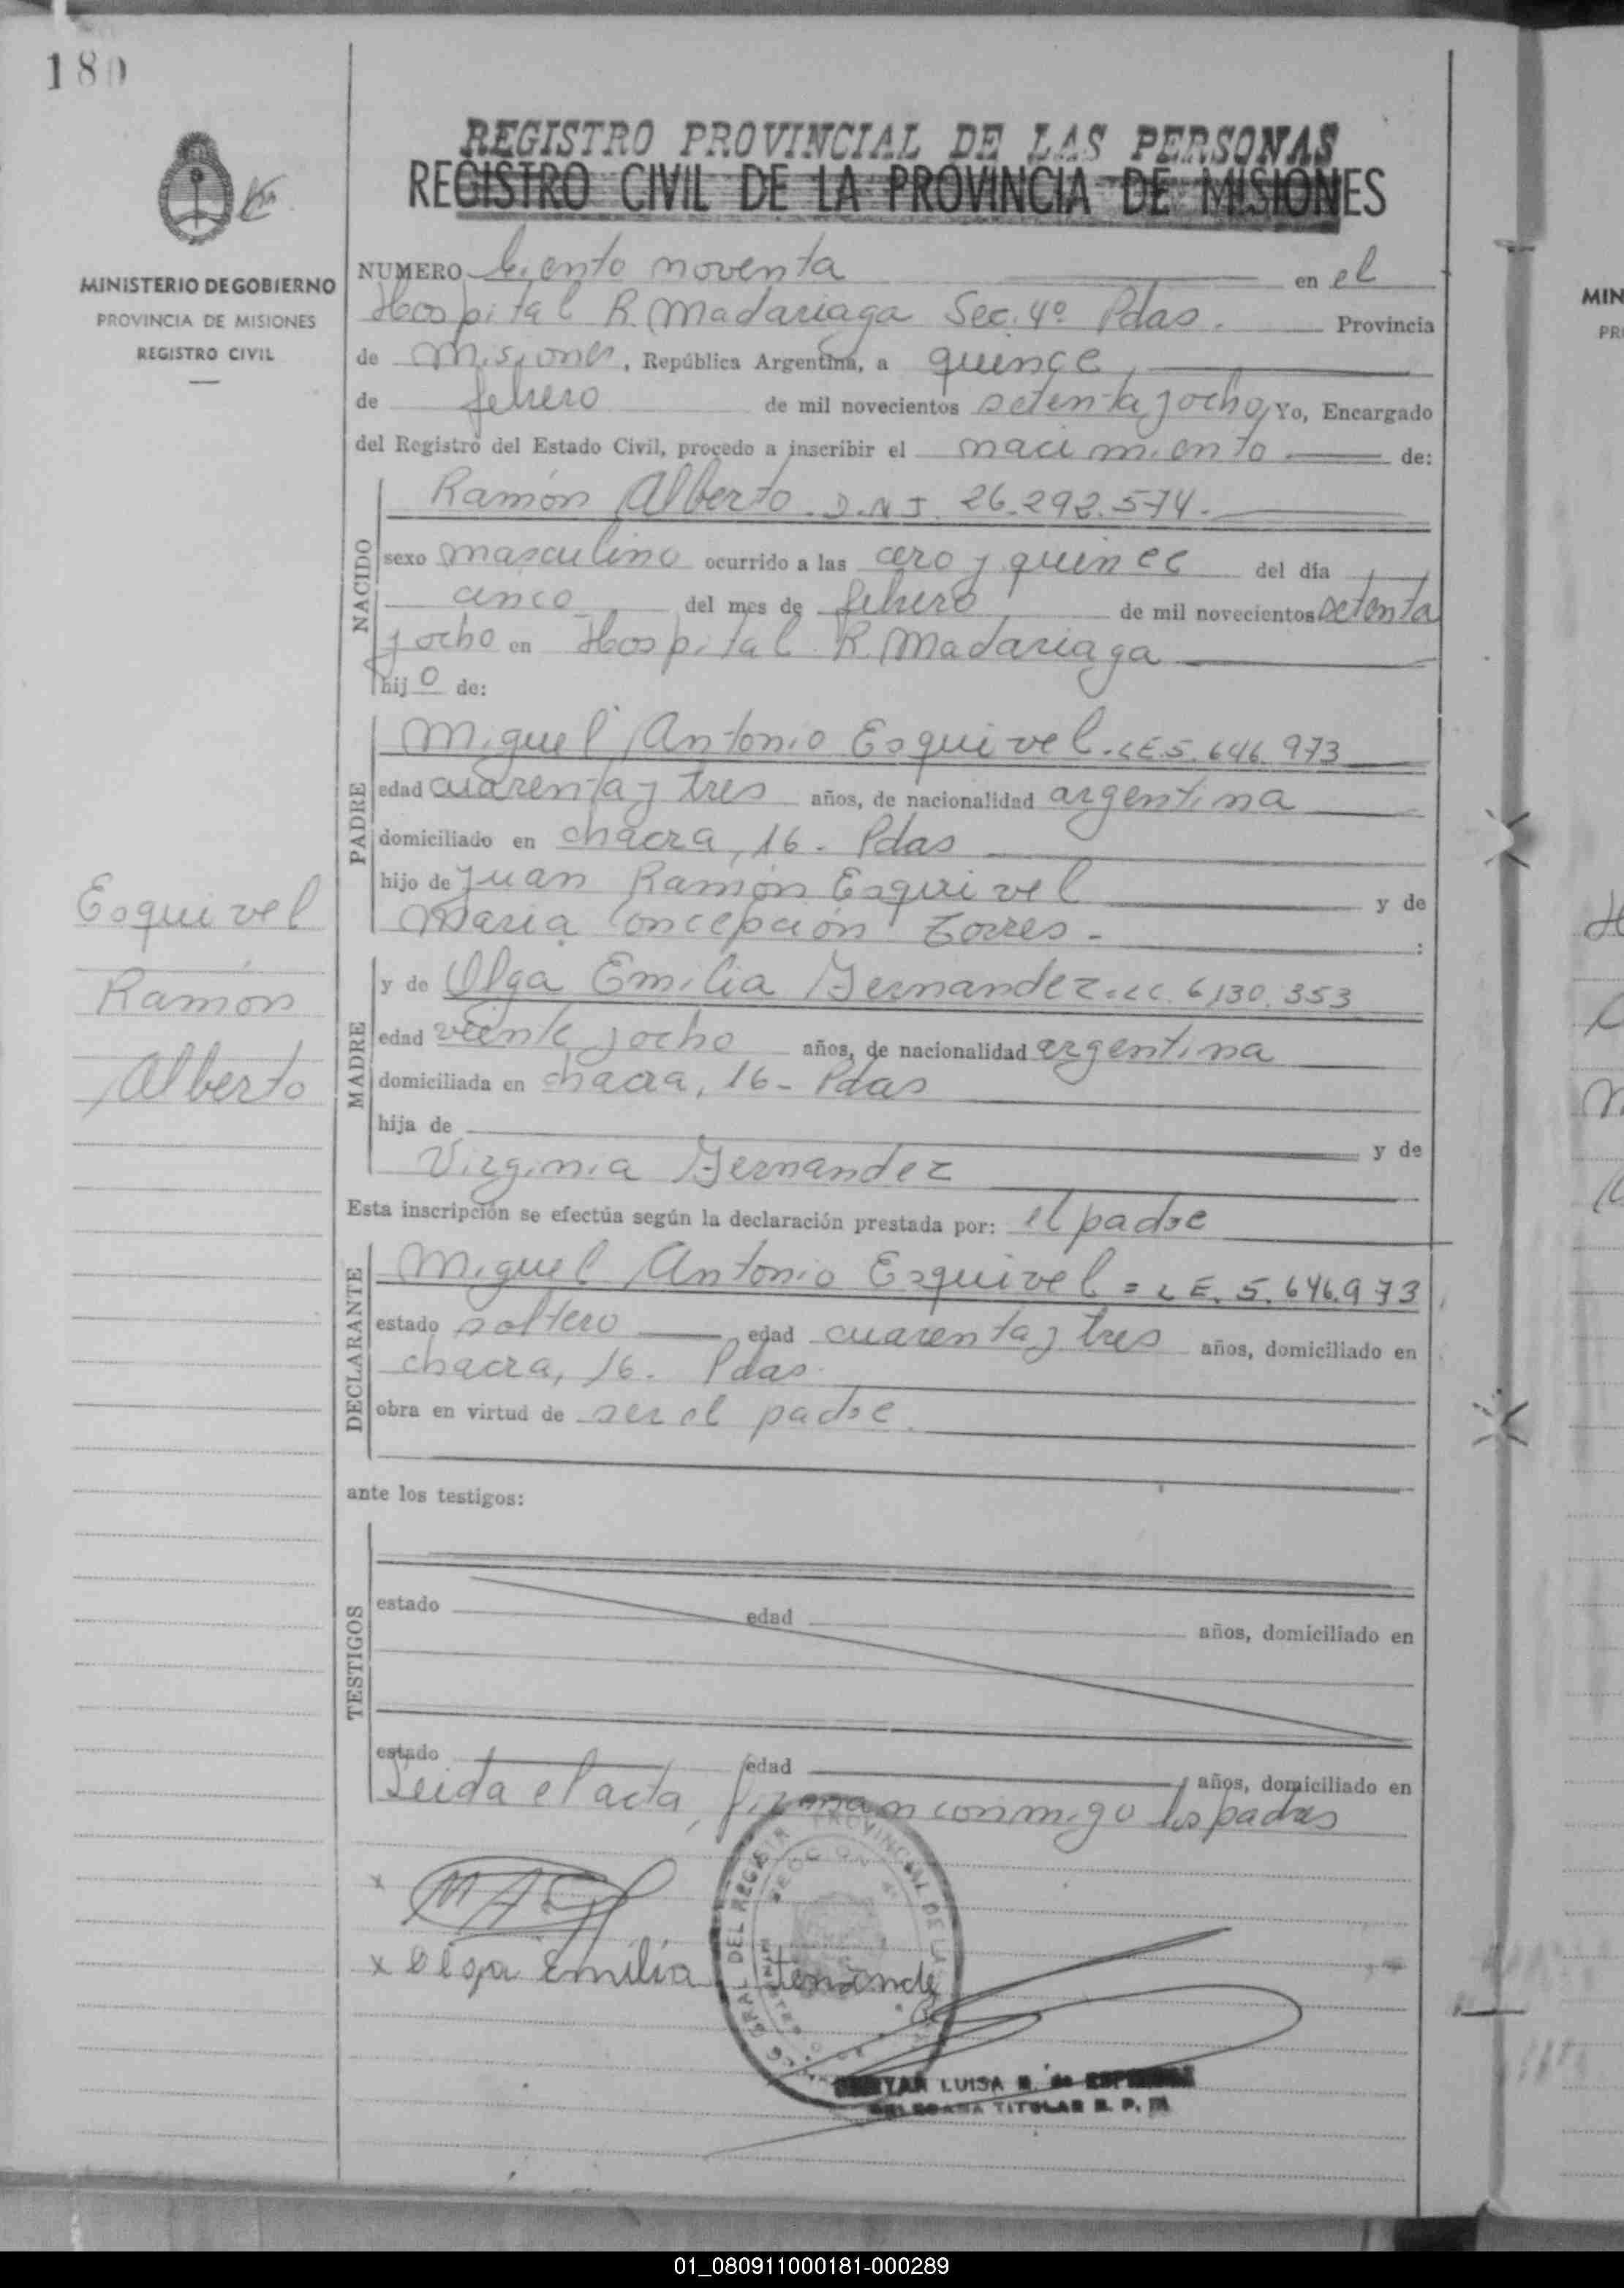 180
REGISTRO PROVINCIAL DE LAS PERSONAS
REGISTRO CIVIL DE LA PROVINCIA DE MISIONES
MINISTERIO DE GOBIERNO
PROVINCIA DE MISIONES
REGISTRO CIVIL
NUMERO Ciento noventa en el
Hospital R. Madariaga Sec. 4º Pdas. Provincia
de Misiones, República Argentina, a quince,
de febrero de mil novecientos setenta y ocho, Yo, Encargado
del Registro del Estado Civil, procedo a inscribir el nacimiento de:
NACIDO
Ramón Alberto. D.N.I. 26.292.574.
sexo masculino ocurrido a las cero y quince del día
cinco del mes de febrero de mil novecientos setenta
y ocho en Hospital R. Madariaga
hij o de:
PADRE
Miguel Antonio Esquivel. LE. 5.646.973
edad cuarenta y tres años, de nacionalidad argentina
domiciliado en chacra, 16. Pdas
hijo de Juan Ramón Esquivel y de
Maria Concepción Torres. :
MADRE
y de Olga Emilia Fernandez. LC. 6,130.353
edad veinte y ocho años, de nacionalidad argentina
domiciliada en chacra, 16- Pdas
hija de y de
Virginia Fernandez
Esta inscripción se efectúa según la declaración prestada por: el padre
DECLARANTE
Miguel Antonio Esquivel = LE. 5.646.973
estado soltero edad cuarenta y tres años, domiciliado en
chacra, 16. Pdas.
obra en virtud de ser el padre.
ante los testigos:
TESTIGOS
estado edad años, domiciliado en
estado edad años, domiciliado en
Leida el acta, firman conmigo los padres
x
x Olga Emilia Fernandez
LUISA
TITULAR R. P.
Esquivel
Ramón
Alberto
MIN
01_080911000181-000289